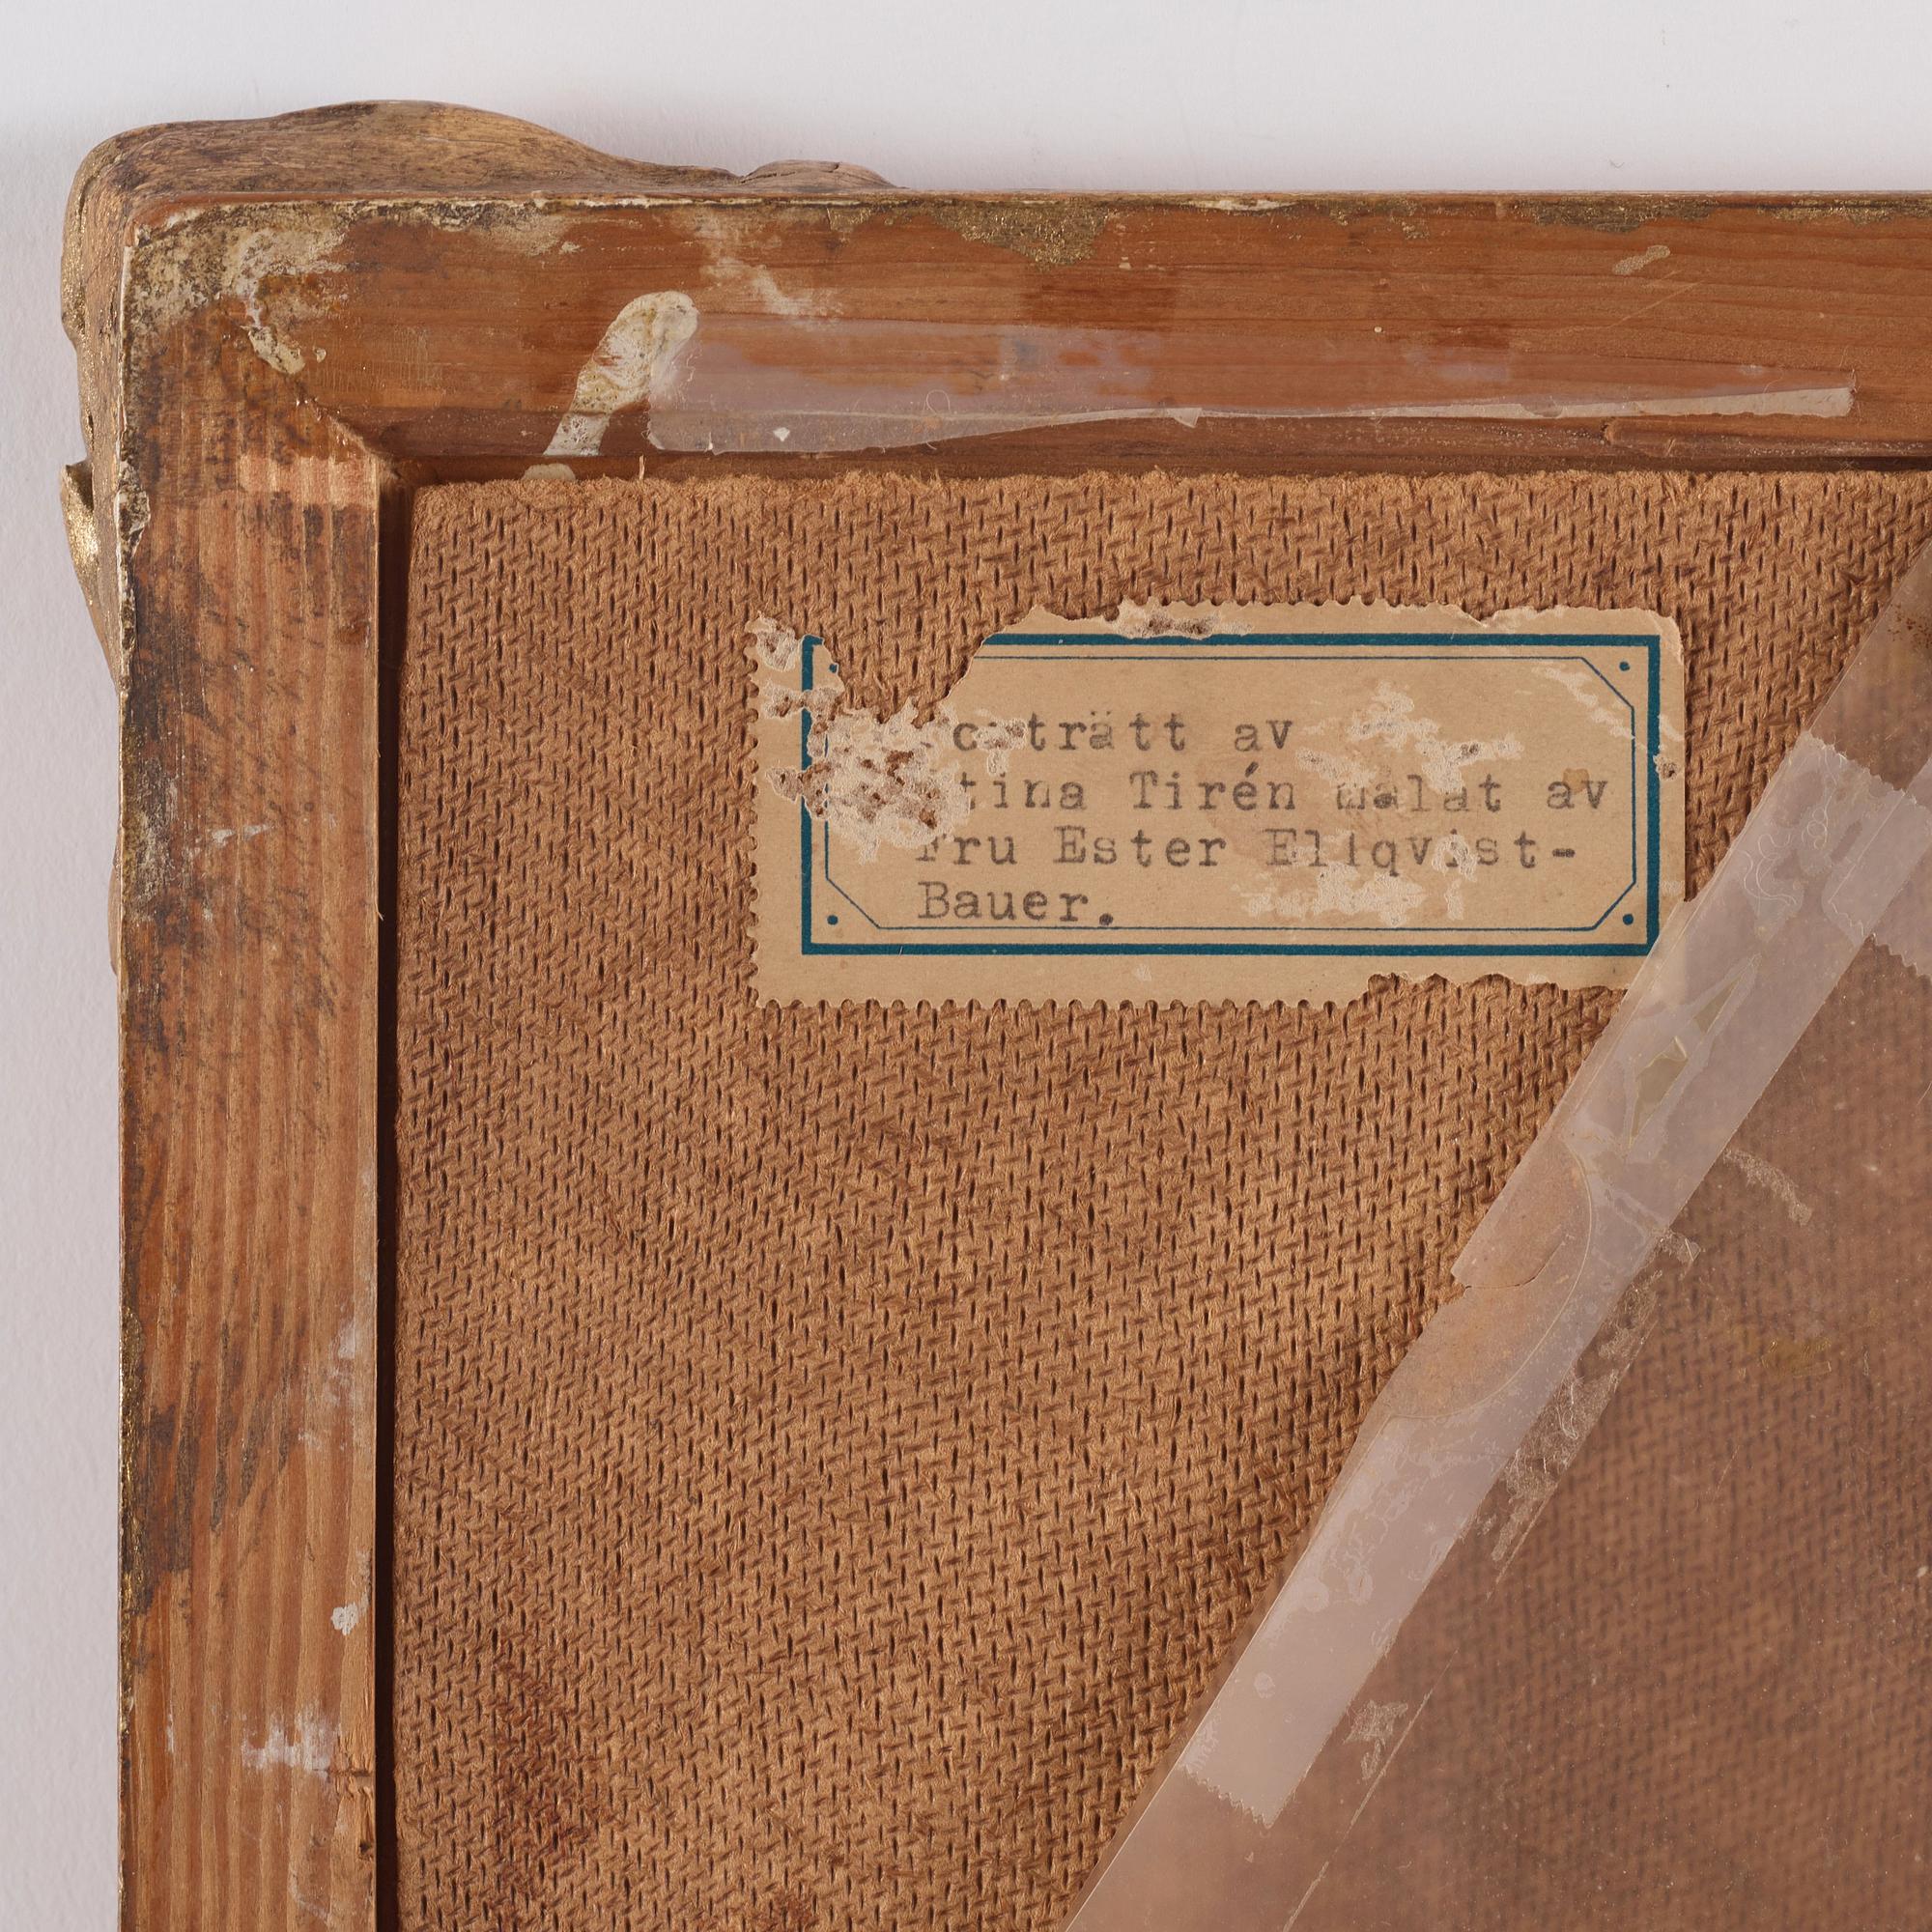 Porträtt av
tina Tirén målat av
Fru Ester Ellqvist-
Bauer.